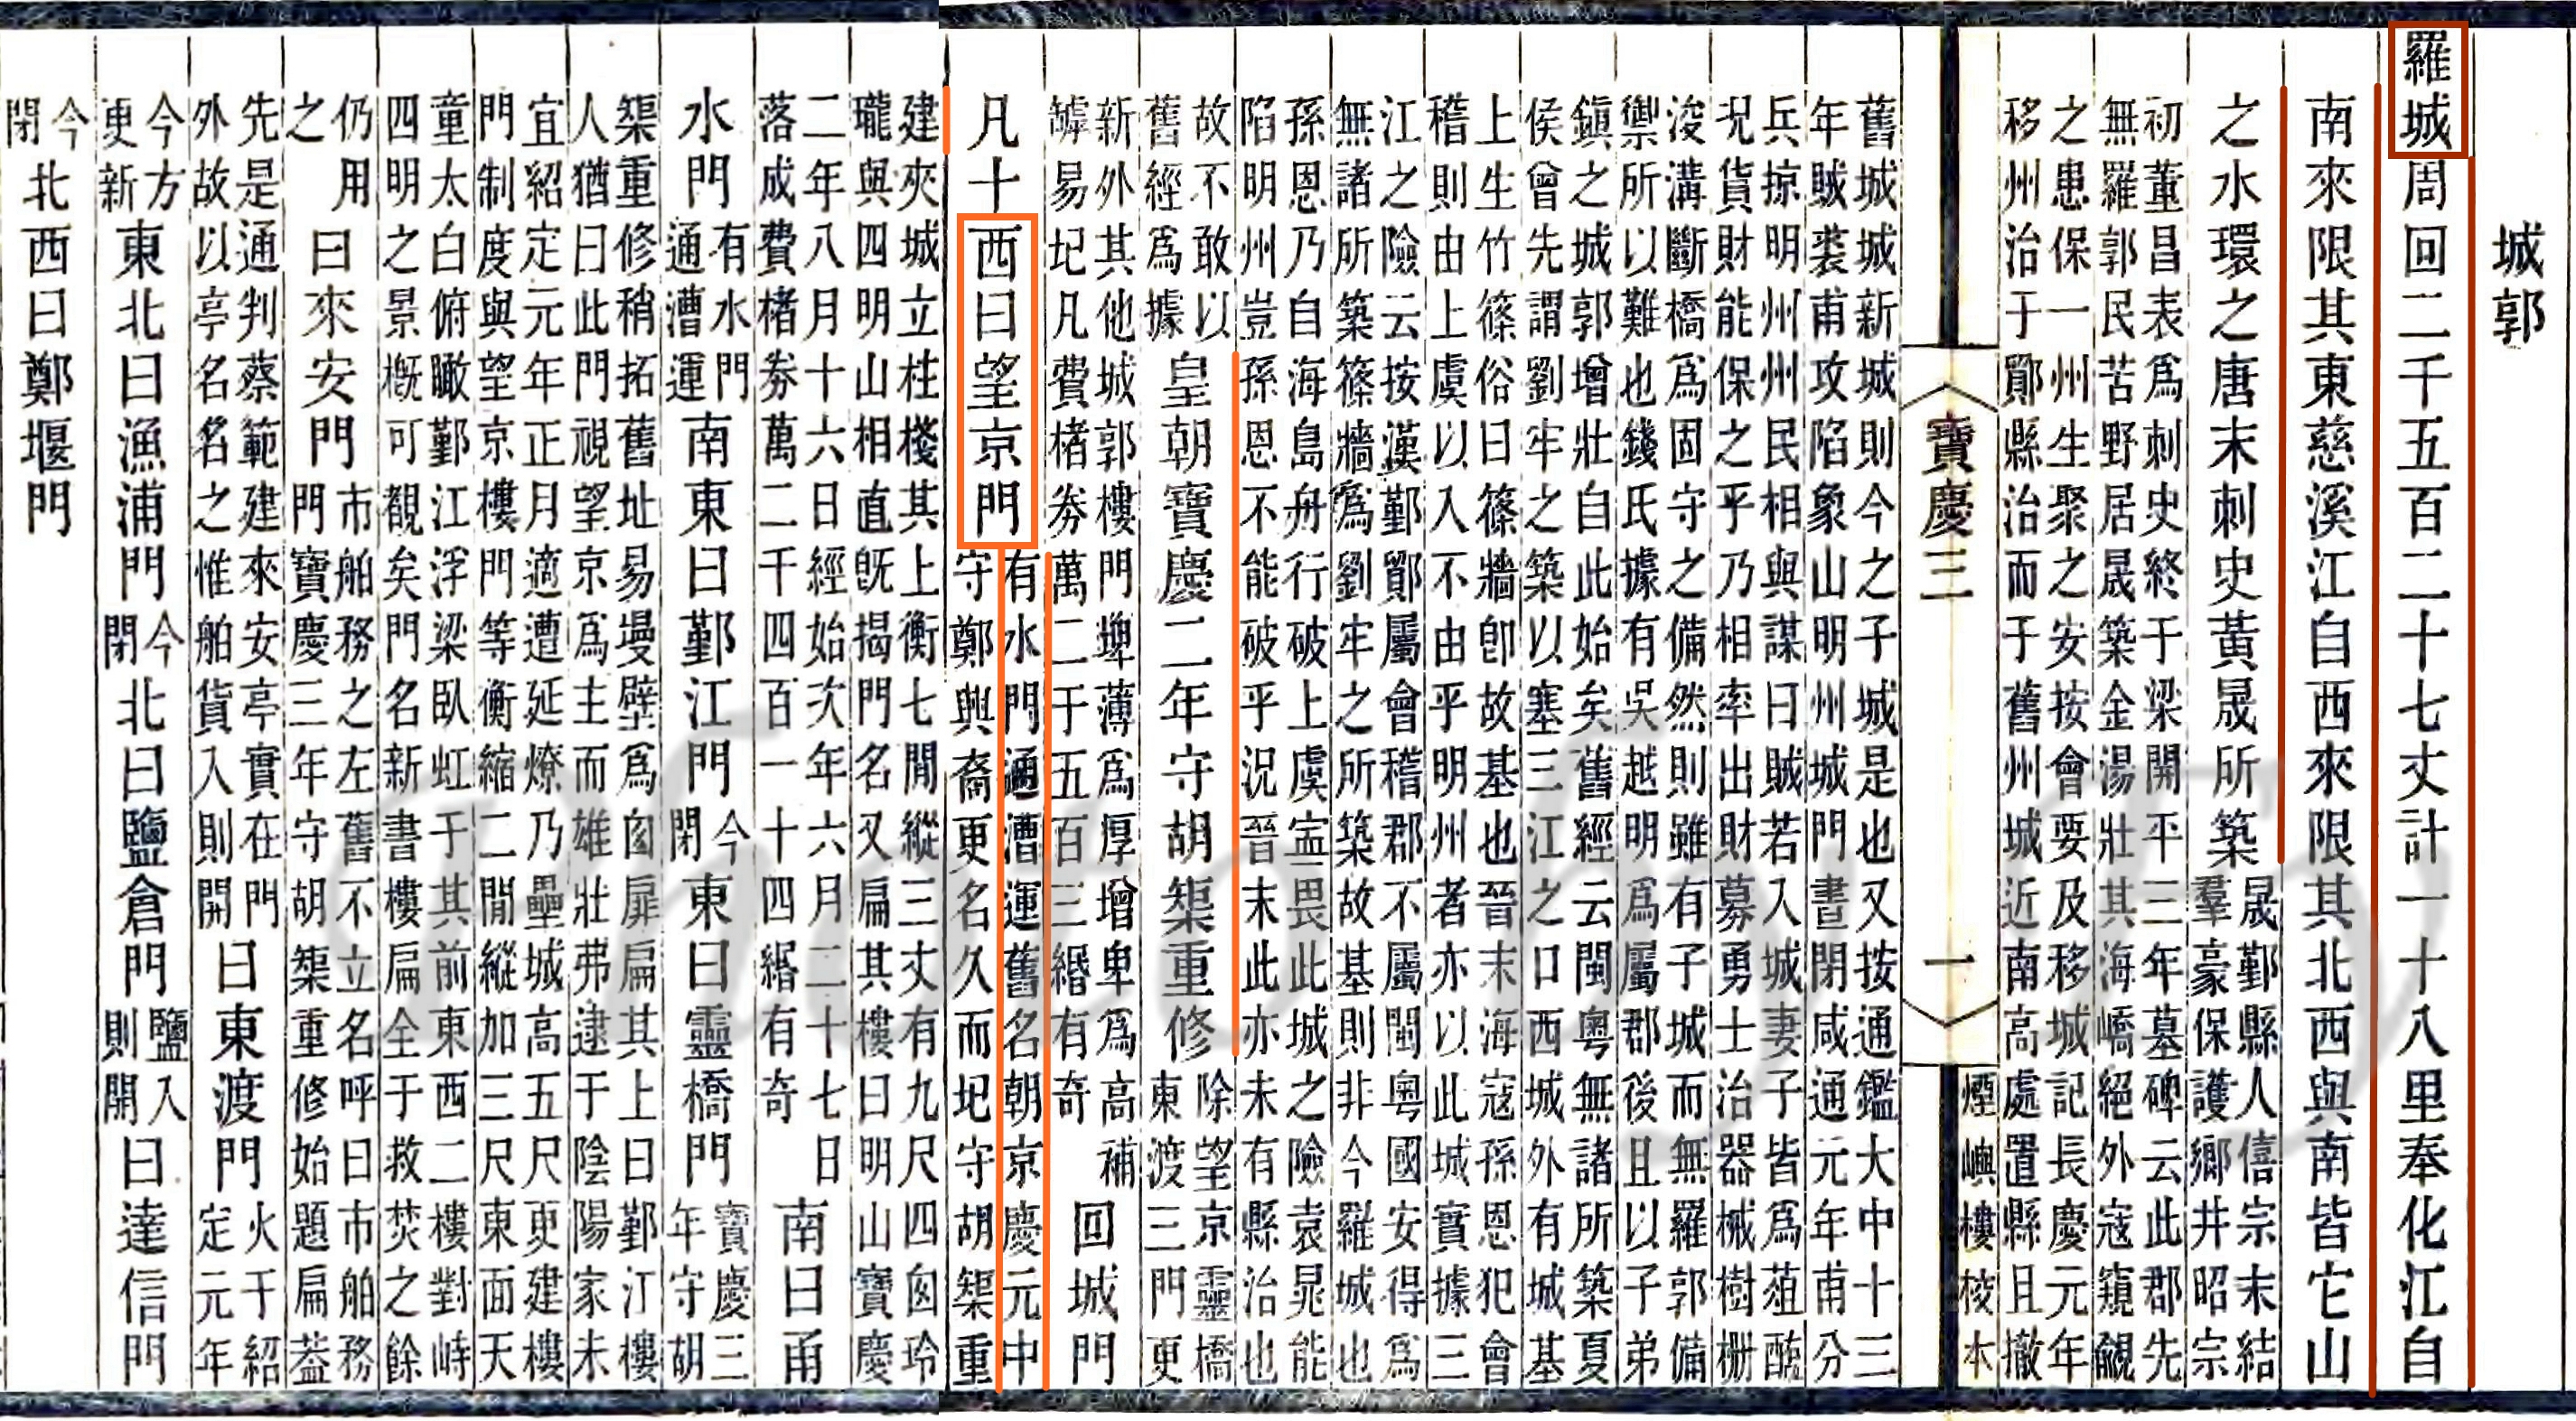 城郭
羅城周回二千五百二十七丈計一十八里奉化江自
南來限其東慈溪江自西來限其北西與南皆它山
之水環之唐末刺史黃晟所築
晟鄞縣人僖宗末結
羣豪保護鄉井昭宗
初董昌表爲刺史終于梁開平三年墓碑云此郡先
無羅郭民苦野居晟築金湯壯其海嶠絕外寇窺覦
之患保一州生聚之安按會要及移城記長慶元年
移州治于鄮縣治而于舊州城近南高處置縣且撤
寶慶三
一
煙嶼樓校本
舊城城新城則今之子城是也又按通鑑大中十三
年賊裘甫攻陷象山明州城門晝閉咸通元年甫分
兵掠明州州民相與謀曰賊若入城妻子皆爲葅醢
況貨財能保之乎乃相率出財募勇士治器械樹柵
浚溝斷橋爲固守之備然則雖有子城而無羅郭備
禦所以難也錢氏據有吳越明爲屬郡後且以子弟
鎮之城郭增壯自此始矣舊經云閩粵無諸所築夏
侯曾先謂劉牢之築以塞三江之口西城外有城基
上生竹篠俗曰篠牆卽故基也晉末海寇孫恩犯會
稽則由上虞以入不由乎明州者亦以此城實據三
江之險云按漢鄞鄮屬會稽郡不屬閩粵國安得爲
無諸所築篠牆爲劉牢之所築故基則非今羅城也
孫恩乃自海島舟行破上虞寍畏此城之險袁晁能
陷明州豈孫恩不能破乎況晉末此亦未有縣治也
故不敢以
舊經爲據
皇朝寶慶二年守胡榘重修
除望京靈橋
東渡三門更
新外其他城郭樓門埤薄爲厚增卑爲高補
罅易圮凡費楮劵萬二于五百三緡有奇
回城門
凡十西曰望京門
有水門通漕運舊名朝京慶元中
守鄭興裔更名久而圮守胡榘重
建夾城立柱棧其上衡七閒縱三丈有九尺四囪玲
瓏與四明山相直旣揭門名又扁其樓曰明山寶慶
二年八月十六日經始次年六月二十七日
落成費楮劵萬二千四百一十四緡有奇
南曰甬
水門
有水門
通漕運
南東曰鄞江門
今
閉
東曰靈橋門
寶慶三
年守胡
榘重修稍拓舊址易墁壁爲囪扉扁其上曰鄞江樓
人猶曰此門視望京爲主而雄壯弗逮于陰陽家未
宜紹定元年正月適遭延燎乃壘城高五尺更建樓
門制度與望京樓門等衡縮二閒縱加三尺東面天
童太白俯瞰鄞江浮梁臥虹于其前東西二樓對峙
四明之景槪可覩矣門名新書樓扁全于救焚之餘
仍用
之
曰來安門
市舶務之左舊不立名呼曰市舶務
門寶慶三年守胡榘重修始題扁葢
先是通判蔡範建來安亭實在門
外故以亭名名之惟舶貨入則開
曰東渡門
火于紹
定元年
今方
更新
東北曰漁浦門
今
閉
北曰鹽倉門
鹽入
則開
曰達信門
今
閉
北西曰鄭堰門